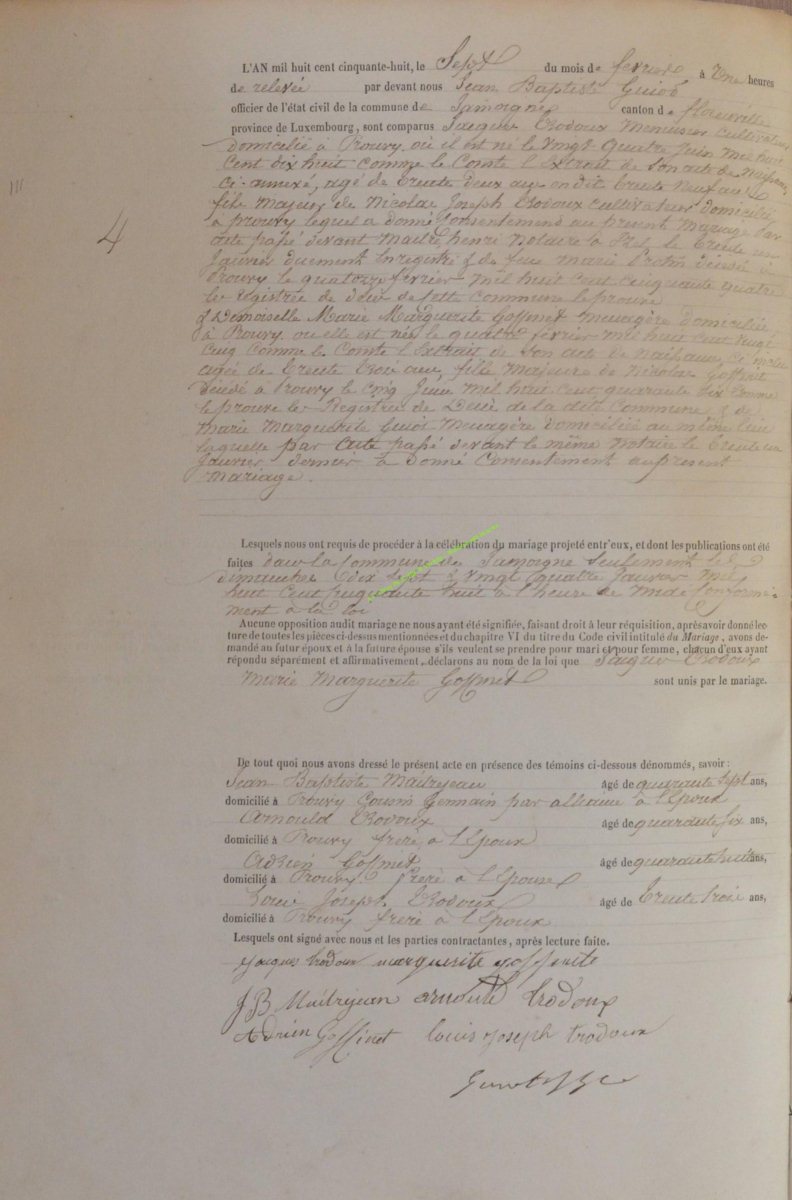 L'AN mil huit cent cinquante-huit, le Sept du mois de fevrier à une heures
de relevée par devant nous Jean Baptiste Guiot
officier de l'état civil de la commune de Jamoigne canton de florenville
province de Luxembourg, sont comparus Jacque Trodoux Menuisier Cultivateur
domicilié à Prouvy où il est né le Vingt quatre Juin mil huit
Cent dix huit comme le Comte l'Extrait de son acte de naissance
Ci-annexé, agé de trente deux ans on dit trente neuf ans
fils majeur de Nicolas Joseph Trodoux cultivateur domicilié
à prouvy lequel a donné Consentement au present Mariage par
acte passé devant Maitre henri Notaire à le trente un
Janvier duement Enregistré & de feue Marie décédée à
Prouvy le quatorze fevrier mil huit cent cinquante quatre
les registrée de décè de sette Commune le prouve
& Demoiselle Marie Marguerite Goffinet Menagère domiciliée
à Prouvy ou elle est née le quatre février mil huit Cent vingt
cinq comme le Comte l'Extrait de Son acte de naissance ci
agée de trente trois ans, fille majeure de Nicolas Goffinet
Décédé à Prouvy le cinq Juin Mil huit cent quarante six comme
le prouve les Registres de Décè de la dite Commune & de
Marie Marguerite Guiot Menagère domiciliée au même lieu
laquelle par acte passé devant le même Notaire le trente un
Janvier dernier à donné Consentement au present
mariage.
4
Lesquels nous ont requis de procéder à la célébration du mariage projeté entr'eux, et dont les publications ont été
faites dans la Commune de Jamoigne Seulement les
dimanches dix sept & vingt quatre Janvier mil
huit Cent cinquante huit à l'heure de midi Conformé-
ment à la loi
Aucune opposition audit mariage ne nous ayant été signifiée, faisant droit à leur réquisition, après avoir donné lec-
ture de toutes les pièces ci-dessus mentionnées et du chapitre VI du titre du Code civil intitulé du Mariage, avons de-
mandé au futur époux et à la future épouse s'ils veulent se prendre pour mari et pour femme, chacun d'eux ayant
répondu séparément et affirmativement, déclarons au nom de la loi que Jacque Trodoux
Marie Marguerite Goffinet sont unis par le mariage.
De tout quoi nous avons dressé le présent acte en présence des témoins ci-dessous dénommés, savoir :
Jean Baptiste Maitrejean âgé de quarante sept ans,
domicilié à Prouvy Cousin Germain par alliance à l'Epoux
Arnould Trodoux âgé de quarante six ans,
domicilié à Prouvy frere à l'Epoux
Adrien Goffinet âgé de quarante huit ans,
domicilié à Prouvy frere à l'Epouse
Louis Joseph Trodoux âgé de trente trois ans,
domicilié à Prouvy frere à l'Epoux
Lesquels ont signé avec nous et les parties contractantes, après lecture faite.
Jacque trodoux marguerite goffinete
J B Maitrejean arnould trodoux
Adrien Goffinet louis joseph trodoux